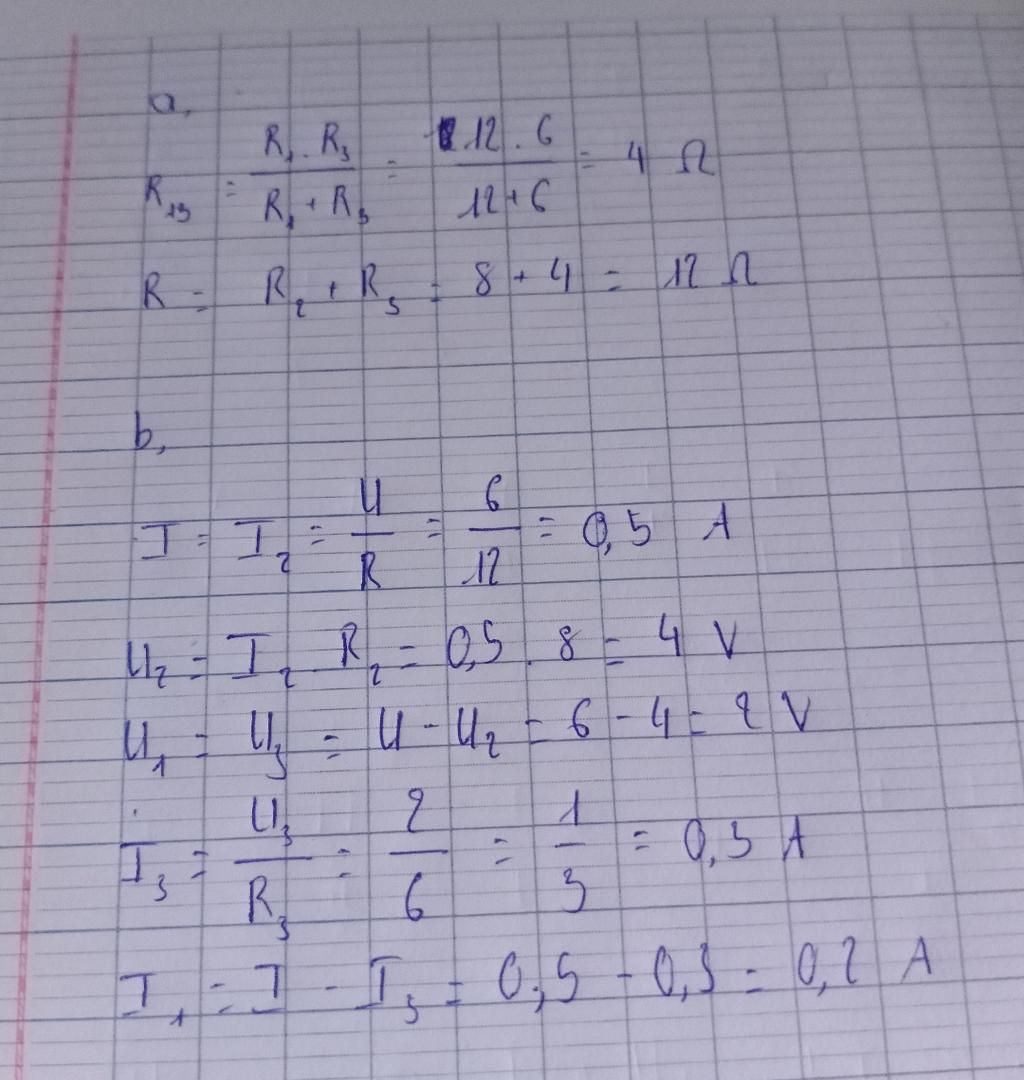 a,
R₁₃ = R₁ . R₃ / R₁ + R₃ = 12 . 6 / 12 + 6 = 4 Ω
R = R₂ + R₃ = 8 + 4 = 12 Ω
b,
I = I₂ = U / R = 6 / 12 = 0,5 A
U₂ = I₂ R₂ = 0,5 . 8 = 4 V
U₁ = U₃ = U - U₂ = 6 - 4 = 2 V
I₃ = U₃ / R₃ = 2 / 6 = 1 / 3 = 0,3 A
I₁ = I - I₃ = 0,5 - 0,3 = 0,2 A